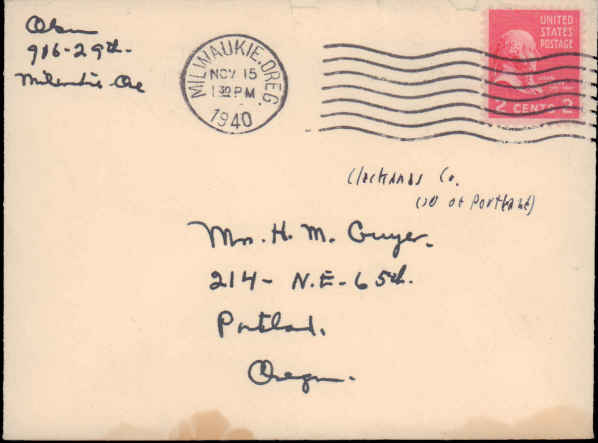 Olsen
916-29th.
Milwaukie-Ore
MILWAUKIE, OREG.
NOV 15
1 30 PM
1940
UNITED
STATES
POSTAGE
2 CENTS 2
Clackamas Co.
Mrs. H. M. Guyer.
214- N.E-65th.
Portland.
Oregon.